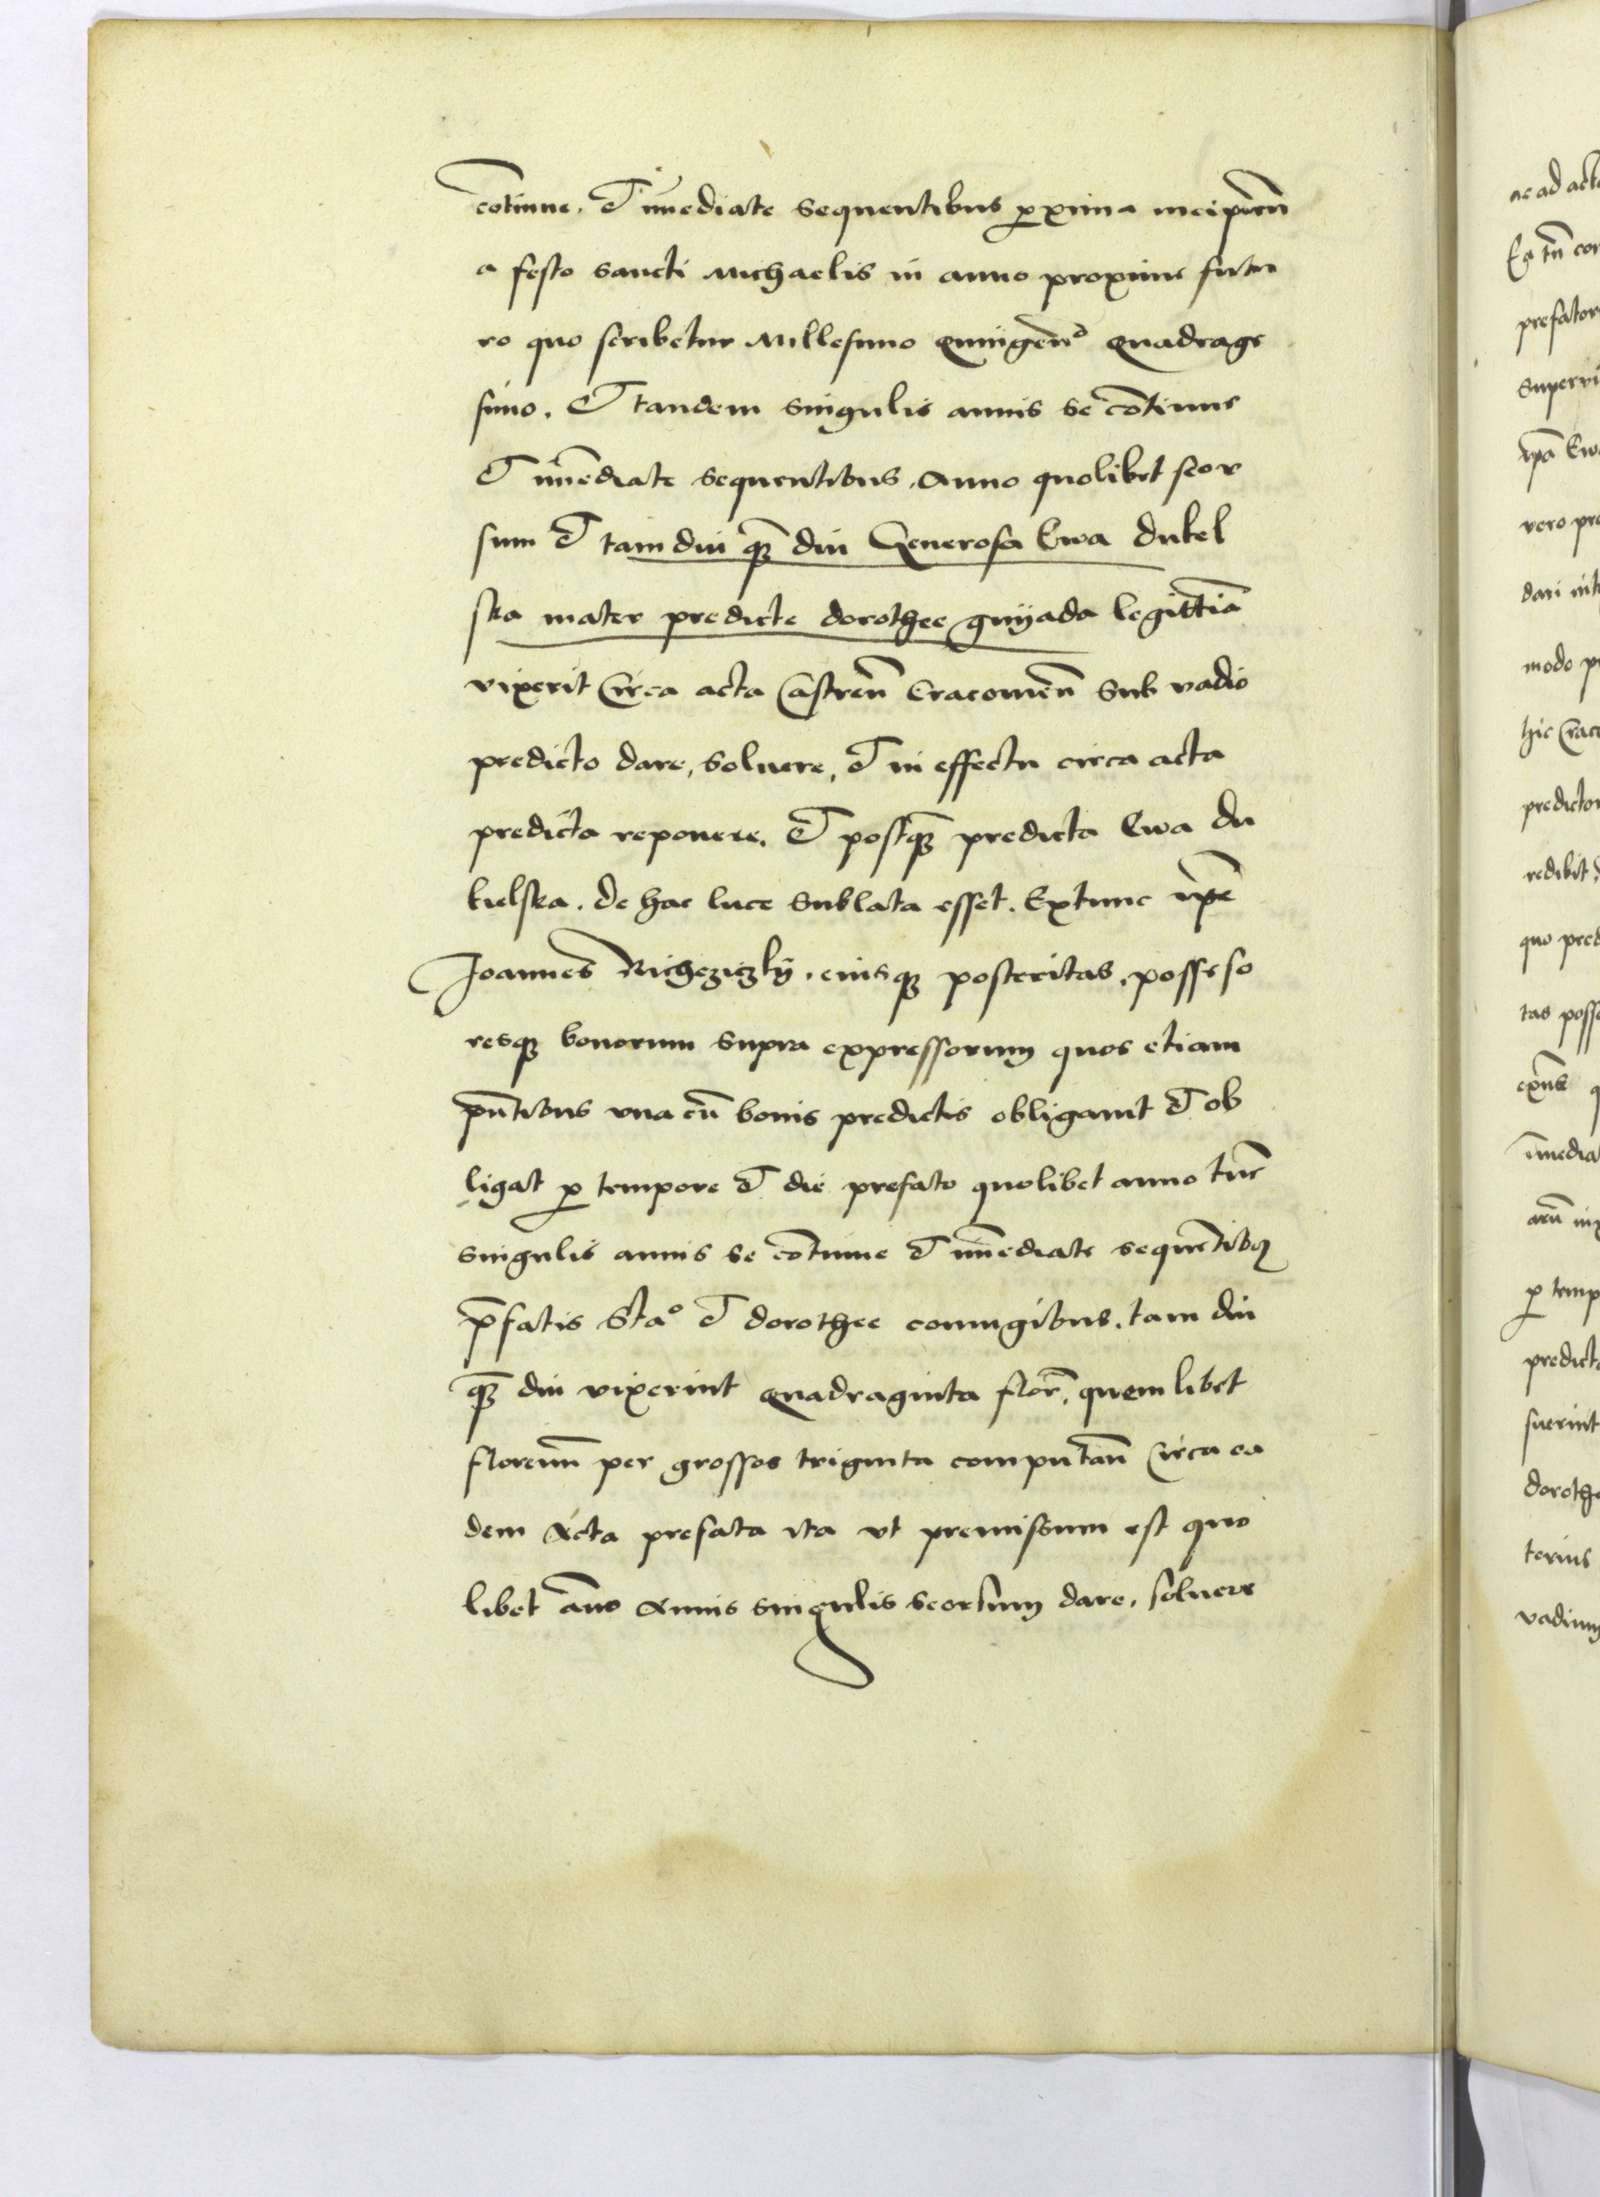 cōtinue. Et īmediate sequentibus ꝓxima incipieñ
a festo sancti Michaelis in anno proxime futu
ro quo scribetur Millesimo quingenͦ quadrage
simo. Et tandem singulis annis se cōtinue
Et īmediate sequentibus. Anno quolibet seor
sum Et tamdiu qͣ̄ diu Generosa Ewa dubel
ska mater predicte dorothee legittiā
vixerit Circa acta Castreñ Cracouieñ sub vadio
predicto dare, soluere, Et in effectu circa acta
predicta reponere. Et postqͣ̄ predicta Ewa du
bielska. de hac luce sublata esset. Extunc ip̄e
Joannes eiusqꝫ posteritas. possesso
resqꝫ bonorum supra expressorum quos etiam
pn̄tibus vna cū bonis predictis obligauit Et ob
ligat ꝓ tempore Et die prefato quolibet anno tūc
singulis annis se cōtinue Et īmediate sequētibꝫ
p̄fatis Staͦ Et dorothee coniugibus. tam diu
qͣ̄ diu vixerint quadraginta flor̄. quemlibet
florenū per grossos triginta computañ Circa ea
dem Acta prefata ita vt premissum est quo
libet āno Annis singulis seorsum dare. soluere
ac ad acta
prefator
vero pre
modo p
predictor
redibit
quo pred
tas posse
īmedia
ꝑ temp
predict
fuerint
dorothe
vadium